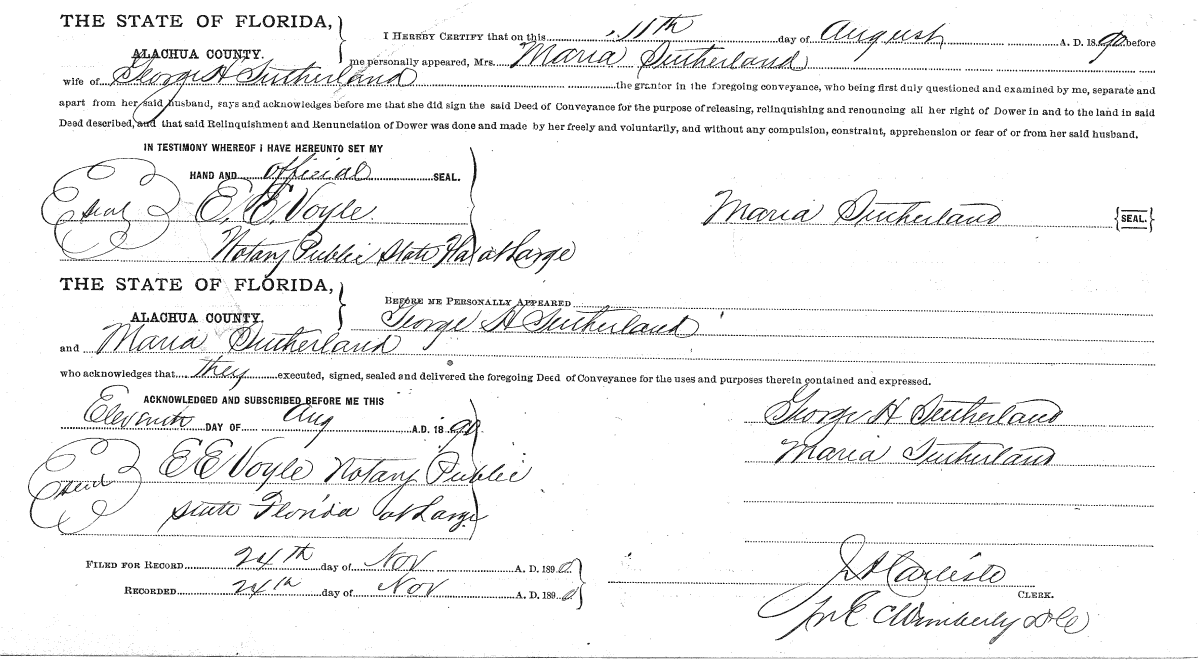 THE STATE OF FLORIDA,
ALACHUA COUNTY.
I HEREBY CERTIFY that on this 11th day of August A. D. 1890 before
me personally appeared, Mrs. Maria Sutherland
wife of George H Sutherland the grantor in the foregoing conveyance, who being first duly questioned and examined by me, separate and
apart from her said husband, says and acknowledges before me that she did sign the said Deed of Conveyance for the purpose of releasing, relinquishing and renouncing all her right of Dower in and to the land in said
Deed described, and that said Relinquishment and Renunciation of Dower was done and made by her freely and voluntarily, and without any compulsion, constraint, apprehension or fear of or from her said husband.
IN TESTIMONY WHEREOF I HAVE HEREUNTO SET MY
HAND AND official SEAL.
Seal E. E. Voyle
Maria Sutherland {SEAL.}
Notary Public State Fla at Large
THE STATE OF FLORIDA,
ALACHUA COUNTY.
BEFORE ME PERSONALLY APPEARED
George H Sutherland
and Maria Sutherland
who acknowledges that they executed, signed, sealed and delivered the foregoing Deed of Conveyance for the uses and purposes therein contained and expressed.
ACKNOWLEDGED AND SUBSCRIBED BEFORE ME THIS
Eleventh DAY OF Aug A.D. 1890
George H Sutherland
Maria Sutherland
Seal E E Voyle Notary Public
State Florida at Large
FILED FOR RECORD 24th day of Nov A. D. 1890
RECORDED 24th day of Nov A. D. 1890
J A Carlisle
CLERK.
Wimberly D C